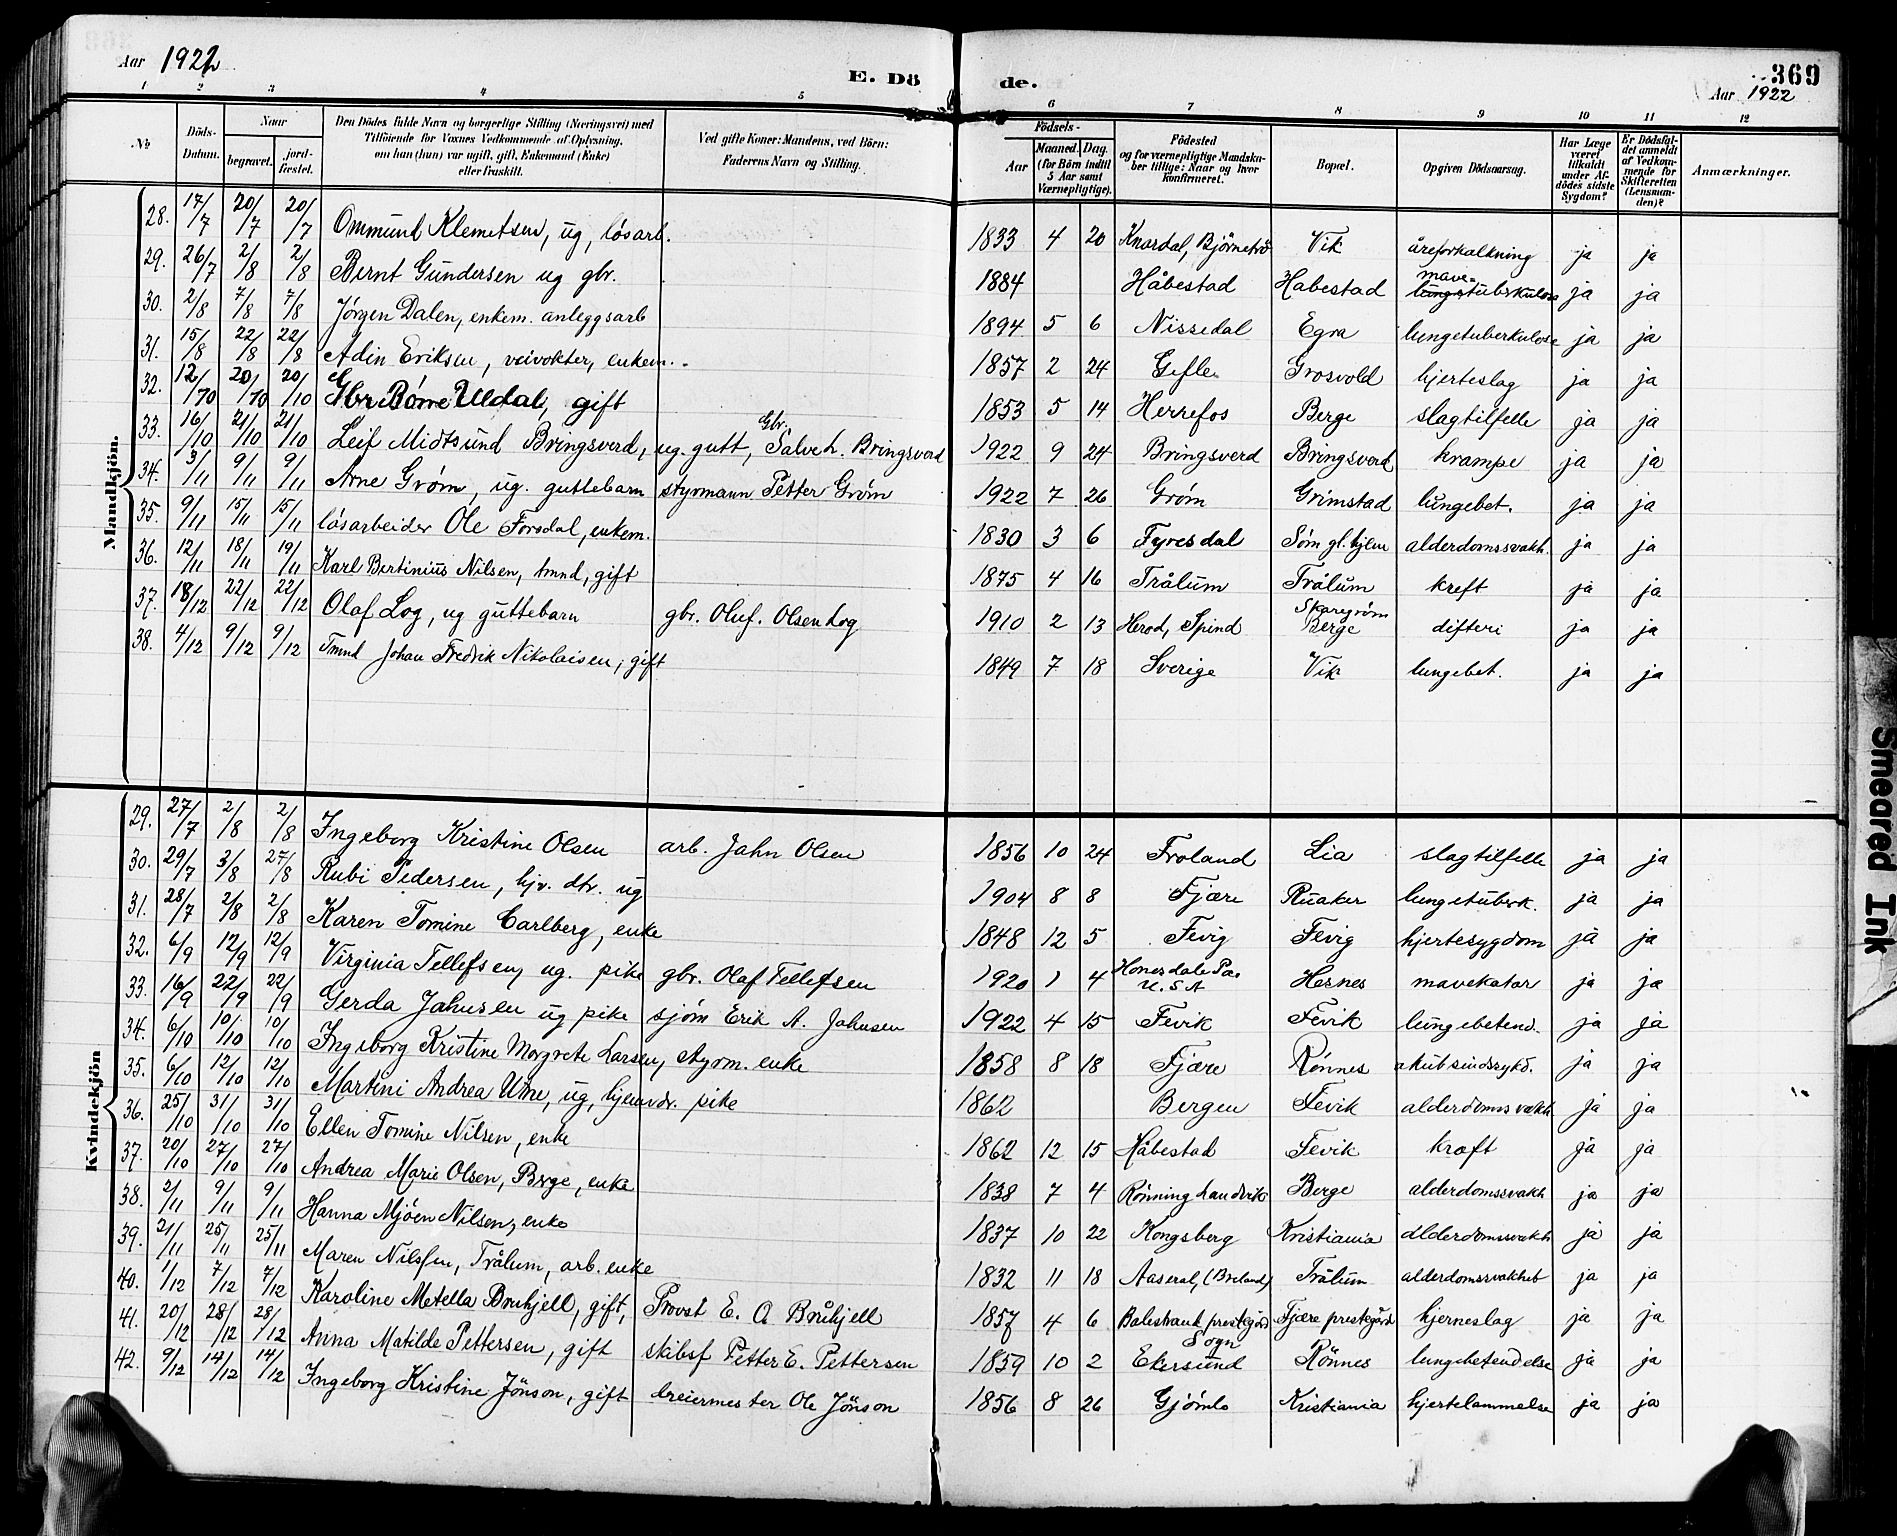 Aar 1922
E. Döde.
369
Aar 1922
1 2 3 4 5 6 7 8 9 10 11 12
No | Döds-Datum. | Naar begravet. | jord-fæstet. | Den Dödes fulde Navn og borgerlige Stilling (Næringsvei) med Tilföiende for Voxnes Vedkommende af Oplysning, om han (hun) var ugift, gift, Enkemand (Enke) eller fraskilt. | Ved gifte Koner: Mandens, ved Börn: Faderens Navn og Stilling. | Födsels- Aar | Maaned. Dag. (for Börn indtil 5 Aar samt Værnepligtige). | Födested og for værnepligtige Mandskaber tillige: Naar og hvor konfirmeret. | Bopæl. | Opgiven Dödsaarsag. | Har Læge været tilkaldt under Afdödes sidste Sygdom? | Er Dödsfaldet anmeldt af Vedkommende for Skifteretten (Lensmanden)? | Anmærkninger.
Mandkjön.
28. 17/7 20/7 20/7 Ommund Klemetsen, ug, lösarb. 1833 4 20 Knardal, Björnetrö Vik åreforkalkning ja ja
29. 26/7 2/8 2/8 Bernt Gundersen ug gbr. 1884 Håbestad Habestad mave- tuberkulose ja ja
30. 2/8 7/8 7/8 Jörgen Dalen, enkem. anleggsarb 1894 5 6 Nissedal Egra lungetuberkulose ja ja
31. 15/8 22/8 22/8 Adin Eriksen, veivokter, enkem. 1857 2 24 Gefle Grosvold hjerteslag ja ja
32. 12/10 20/10 20/10 Gbr. Börre Uldal, gift 1853 5 14 Herrefos Berge slagtilfelle ja ja
33. 16/10 21/10 21/10 Leif Midtsund Bringsverd, ug. gutt, Gbr. Salve h. Bringsverd 1922 9 24 Bringsverd Bringsverd krampe ja ja
34. 3/11 9/11 9/11 Arne Gröm, ug. guttebarn styrmann Petter Gröm 1922 7 26 Gröm Grimstad lungebet. ja ja
35. 9/11 15/11 15/11 lösarbeider Ole Forsdal, enkem. 1830 3 6 Fyresdal Söm gl.hjem alderdomssvakh. ja ja
36. 12/11 18/11 19/11 Karl Bertinius Nilsen, tmnd, gift 1875 4 16 Trålum Trålum kreft ja ja
37. 18/12 22/12 22/12 Olaf Log, ug guttebarn gbr. Oluf. Olsen Log 1910 2 13 Herod, Spind Skaregröm Berge difteri ja ja
38. 4/12 9/12 9/12 Tmnd Johan Fredrik Nikolaisen, gift 1849 7 18 Sverige Vik lungebet. ja ja
Kvindekjön
29. 27/7 2/8 2/8 Ingeborg Kristine Olsen arb. Jahn Olsen 1856 10 24 Froland Lia slagtilfelle ja ja
30. 29/7 3/8 27/8 Rubi Pedersen, hjv. dtr. ug 1904 8 8 Fjære Ruaker lungetuberk. ja ja
31. 28/7 2/8 2/8 Karen Tomine Carlberg, enke 1848 12 5 Fevig Fevig hjertesygdom ja ja
32. 6/9 12/9 12/9 Virginia Tellefsen, ug. pike gbr. Olaf Tellefsen 1920 1 4 Honesdale Pa. U.S.A Hesnes mavekatar ja ja
33. 16/9 22/9 22/9 Gerda Jahnsen ug pike sjöm Erik A. Jahnsen 1922 4 15 Fevik Fevik lungebetend. ja ja
34. 6/10 10/10 10/10 Ingeborg Kristine Margrete Larsen, styrm. enke 1858 8 18 Fjære Rönnes akut sindssykd. ja ja
35. 6/10 12/10 12/10 Martini Andrea Une, ug, hjemvdr. pike 1862 Bergen Fevik alderdomssvakh ja ja
36. 25/10 31/10 31/10 Ellen Tomine Nilsen, enke 1862 12 15 Håbestad Fevik kræft ja ja
37. 20/10 27/10 27/10 Andrea Marie Olsen, Berge, enke 1838 7 4 Rönning Landvik Berge alderdomssvakh ja ja
38. 2/11 9/11 9/11 Hanna Mjöen Nilsen, enke 1837 10 22 Kongsberg Kristiania alderdomssvakh ja ja
39. 21/11 25/11 25/11 Maren Nilssen, Trålum, arb. enke 1832 11 18 Aaseral, (Breland) Trålum alderdomssvakhet ja ja
40. 1/12 7/12 7/12 Karoline Metella Bruhjell, gift, Provst E. A Bruhjell 1857 4 6 Balestrand prestegård Sogn Fjære prestegård hjerneslag ja ja
41. 20/12 28/12 28/12 Anna Matilde Pettersen, gift skibsf Petter E. Pettersen 1859 10 2 Ekersund Rönnes lungebetendelse ja ja
42. 9/12 14/12 14/12 Ingeborg Kristine Jönson, gift breiermester Ole Jönson 1856 8 26 Gjömle Kristiania hjertelammelse ja ja
Smeared Ink